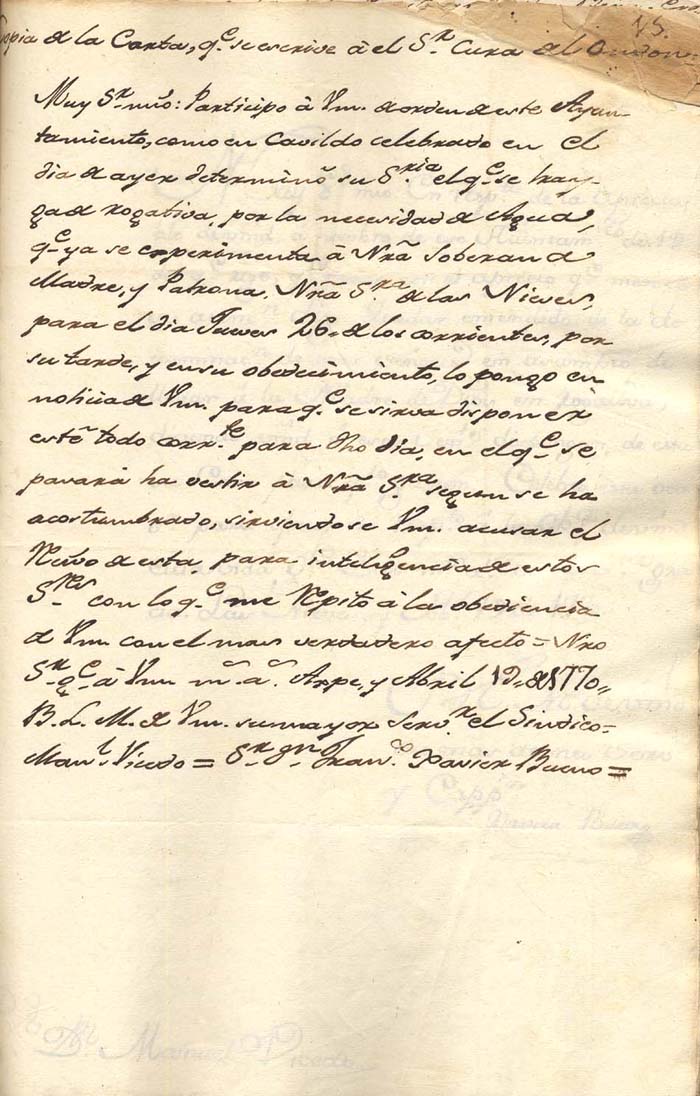 15.
Copia de la Carta, q.e se escrive à el S.r Cura del Ondon.
Muy S.r mio: Participo à Vm. de orden de este Ayun-
tamiento, como en Cavildo celebrado en el
dia de ayer determinó su S.ria el q.e se tray-
ga de rogativa, por la necesidad de Agua,
q.e ya se experimenta à Nrã Soberana
Madre, y Patrona, Nrã S.ra de las Nieves,
para el dia Jueves 26,, de los corrientes, por
su tarde, y en su obedecimiento, lo pongo en
noticia de Vm. para q.e se sirva disponer
esté todo corr.te para dho dia, en el q.e se
pasará ha vestir à Nrã S.ra segun se ha
acostumbrado, sirviendose Vm. acusar el
Revo de esta, para inteligencia de estos
S.res con lo q.e me Repito à la obediencia
de Vm con el mas verdadero afecto = Nro
S.r g.e à Vm m.s a.s Aspe, y Abril de 1770,,
B. L. M. de Vm. su mayor Serv.r el Sindico
Man.l Vicedo = S.r Fran.co Xavier Bueno =
D.n Manuel Vicedo